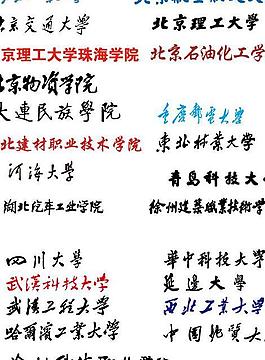 京交通大学 北京理工大学
京理工大学珠海学院 北京石油化工学
北京物资学院
大連民族學院 重慶郵電大学
北建材职业技术学院 東北林業大学
河海大学 青島科技大
湖北汽车工业学院 徐州建築職業技術學
四川大学 華中科技大学
武漢科技大学 延邊大學
武漢工程大学 西北工業大学
哈爾濱工業大學 中国地质大